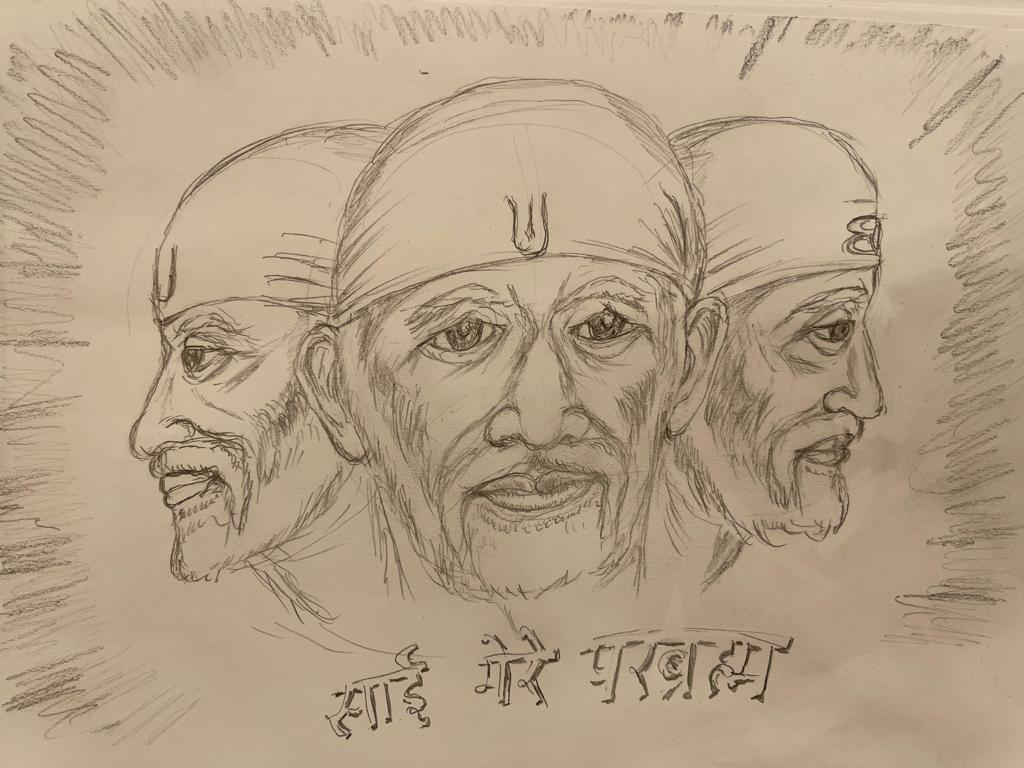 साई मेरे परब्रह्म